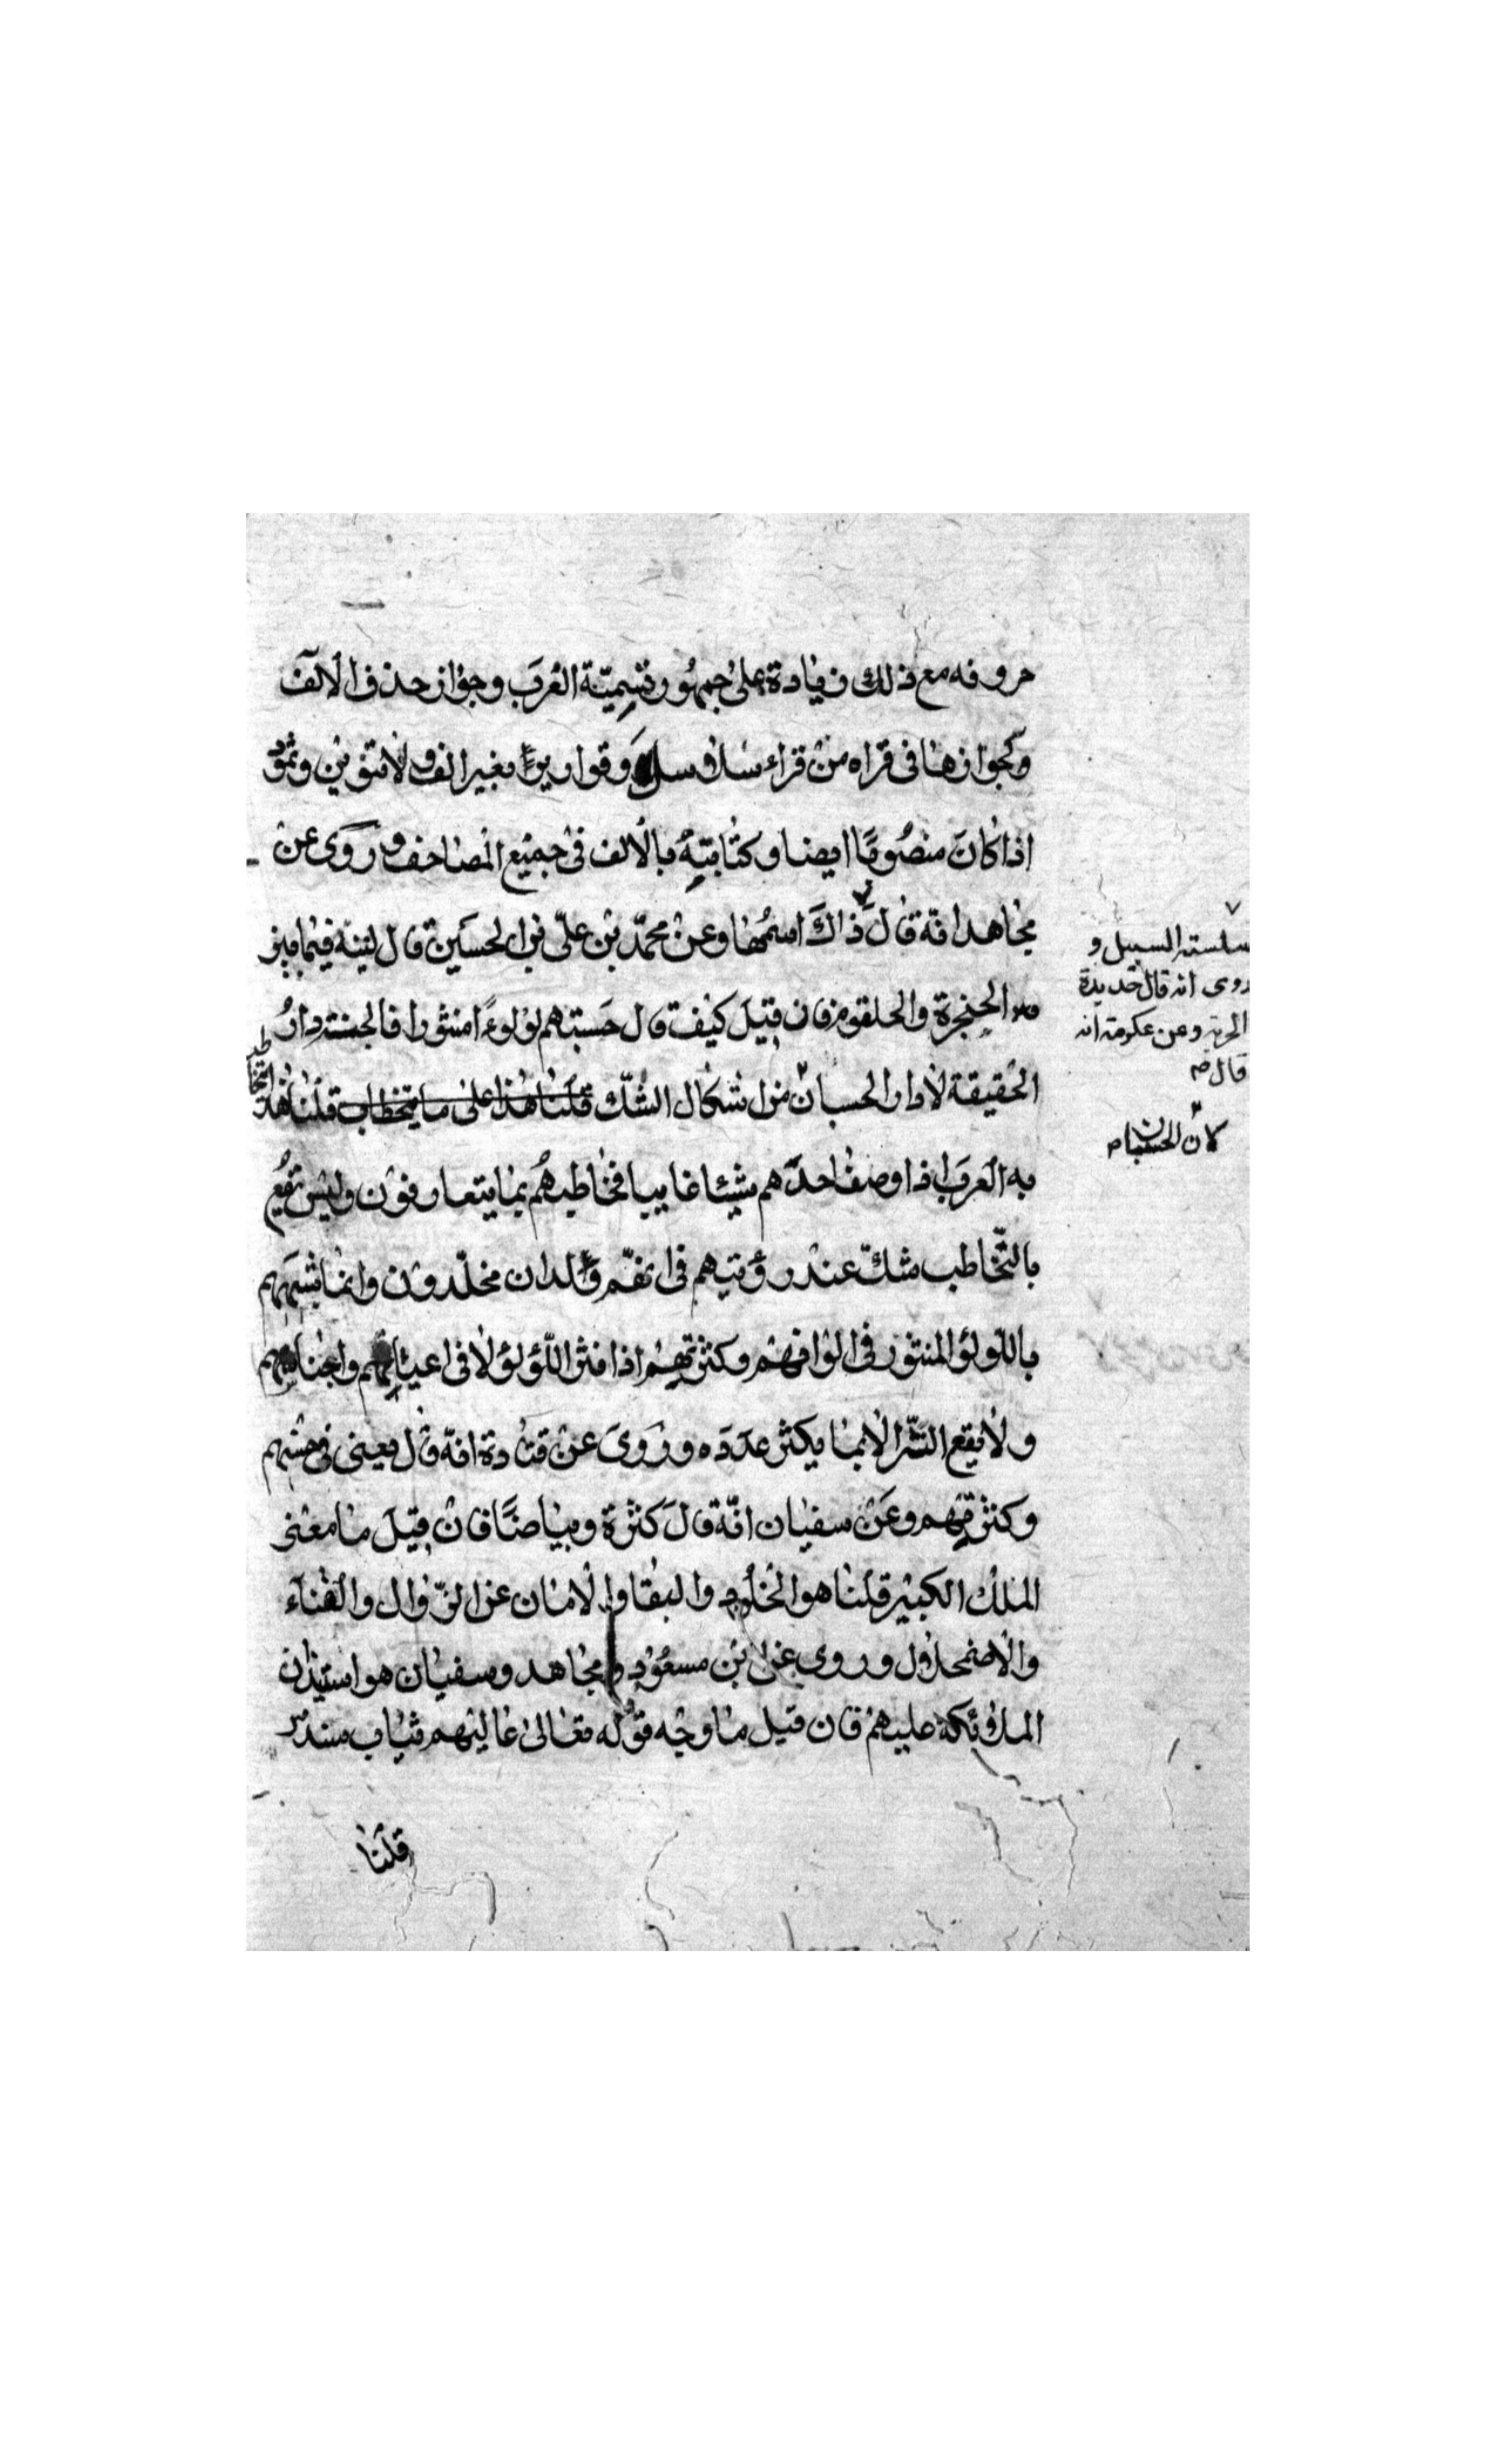 حروفه مع ذلك زيادة على جمهور تسميّة العرب وجواز حذف الألف
وكجوازها فى قراه من قراء سلاسل وقواريرًا بغير الف ولا تنوين وثمود
اذا كان منصوبًا ايضا وكتابته بالالف فى جميع المصاحف وروى عن
مجاهد انّه قال ذاك اسمُها وعن محمّد بن علىّ بن الحسين قال لينة فيما بين
الحنجرة والحلقوم فان قيل كيف قال حسبتهم لؤلوءًا منثورا فالجنّة دارُ
الحقيقة لا دار الحسبان من اشكال الشّك قلنا هذا على ما يتخطاب قلنا هذا
به العرب اذا وصف احدهم شيئا غايبا فخاطبهم بما يتعارفون وليس يقع
بالتّخاطب شكّ عند رؤيتهم فى انهّم ولدان مخلّدون وانما شبّههم
باللّولؤ المنثور فى الوانهم وكثرتهم اذا نثر اللّؤلؤ لا فى اعيانهم واجناسهم
ولا يقع النّثر الا بما يكثر عدده وروى عن قتادة انّه قال معنى فى حسنهم
وكثرتهم وعن سفيان انّه قال كثرة وبياضًا فان قيل ما معنى
الملك الكبير قلنا هو الخلود والبقا والامان عن الزّوال والفناء
والاضمحلال وروى عن ابن مسعود ومجاهد وسفيان هو استيذان
الملائكة عليهم فان قيل ما وجه قوله تعالى عاليهم ثياب سندس
قلنا
سلسلة السبيل و
روى انه قال حديدة
الجرية وعن عكرمة انه
قال ص
لان الحسبان